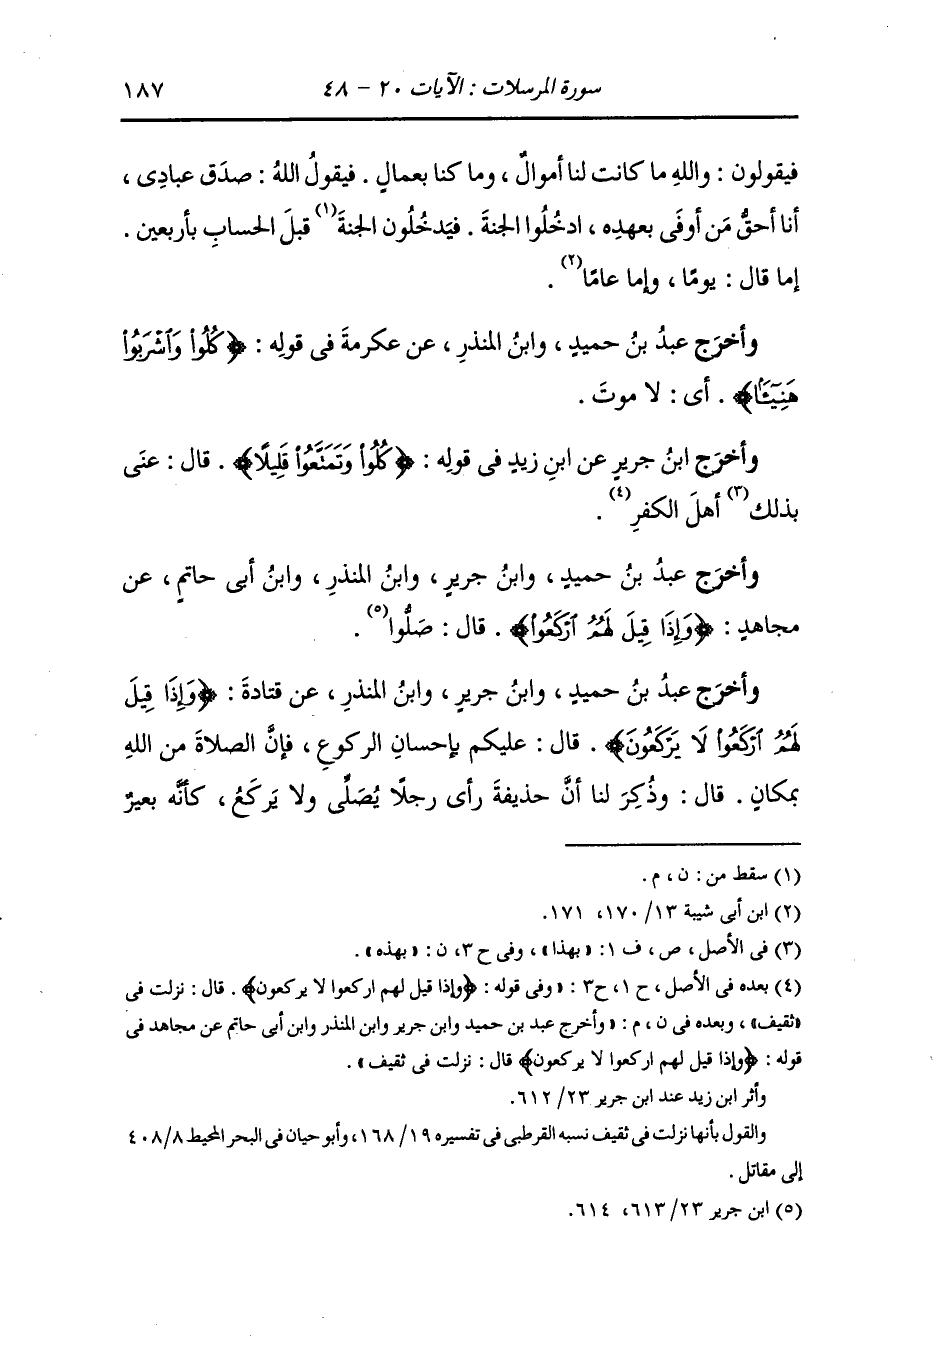 سورة المرسلات : الآيات ٢٠ - ٤٨ ١٨٧
فيقولون : واللهِ ما كانت لنا أموالٌ ، وما كنا بعمالٍ . فيقولُ اللهُ : صدَق عبادِى ،
أنا أحقُّ مَن أوفَى بعهدِه ، ادخُلُوا الجنةَ . فيَدخُلُون الجنةَ(١) قبلَ الحسابِ بأربعين .
إما قال : يومًا ، وإما عامًا(٢) .
وأخرَج عبدُ بنُ حميدٍ ، وابنُ المنذرِ ، عن عكرمةَ فى قولِه : ﴿كُلُوا۟ وَٱشْرَبُوا۟
هَنِيٓـًٔا﴾ . أى : لا موتَ .
وأخرَج ابنُ جريرٍ عن ابنِ زيدٍ فى قولِه : ﴿كُلُوا۟ وَتَمَتَّعُوا۟ قَلِيلًا﴾ . قال : عنَى
بذلك(٣) أهلَ الكفرِ(٤) .
وأخرَج عبدُ بنُ حميدٍ ، وابنُ جريرٍ ، وابنُ المنذرِ ، وابنُ أبى حاتمٍ ، عن
مجاهدٍ : ﴿وَإِذَا قِيلَ لَهُمُ ٱرْكَعُوا۟﴾ . قال : صَلُّوا(٥) .
وأخرَج عبدُ بنُ حميدٍ ، وابنُ جريرٍ ، وابنُ المنذرِ ، عن قتادةَ : ﴿وَإِذَا قِيلَ
لَهُمُ ٱرْكَعُوا۟ لَا يَرْكَعُونَ﴾ . قال : عليكم بإحسانِ الركوعِ ، فإنَّ الصلاةَ من اللهِ
بمكانٍ . قال : وذُكِرَ لنا أنَّ حذيفةَ رأى رجلًا يُصَلِّى ولا يَركَعُ ، كأنَّه بعيرٌ
(١) سقط من : ن ، م .
(٢) ابن أبى شيبة ١٣/ ١٧٠، ١٧١.
(٣) فى الأصل ، ص ، ف ١: « بهذا » ، وفى ح ٣، ن : « بهذه » .
(٤) بعده فى الأصل ، ح ١، ح٣ : « وفى قوله : ﴿وإذا قيل لهم اركعوا لا يركعون﴾ . قال : نزلت فى
«ثقيف» ، وبعده فى ن ، م : « وأخرج عبد بن حميد وابن جرير وابن المنذر وابن أبى حاتم عن مجاهد فى
قوله : ﴿وإذا قيل لهم اركعوا لا يركعون﴾ قال : نزلت فى ثقيف » .
وأثر ابن زيد عند ابن جرير ٢٣/ ٦١٢.
والقول بأنها نزلت فى ثقيف نسبه القرطبى فى تفسيره ١٩/ ١٦٨، وأبو حيان فى البحر المحيط ٨/ ٤٠٨
إلى مقاتل .
(٥) ابن جرير ٢٣/ ٦١٣، ٦١٤.